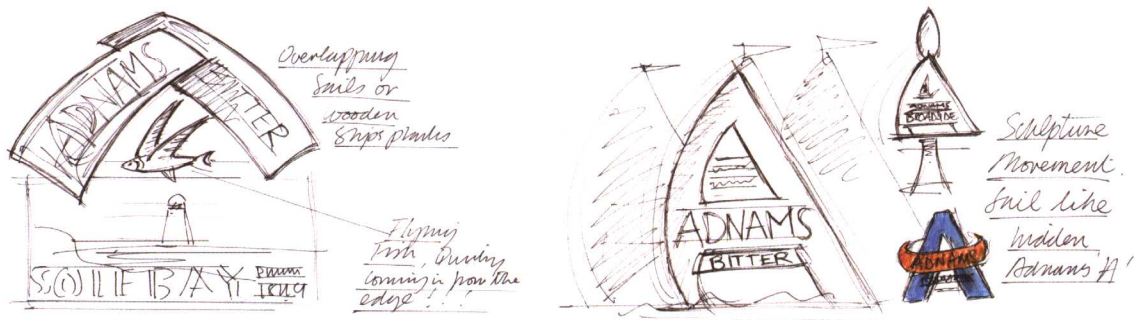 ADNAMS
BITTER
Overlapping
Sails or
wooden
Ships planks
Flying
Fish,
coming in from the
edge!!!
SOLEBAY
ADNAMS
BITTER
ADNAMS
BROADSIDE
Sculpture
Movement.
Sail like
hidden
Adnams 'A'
ADNAMS